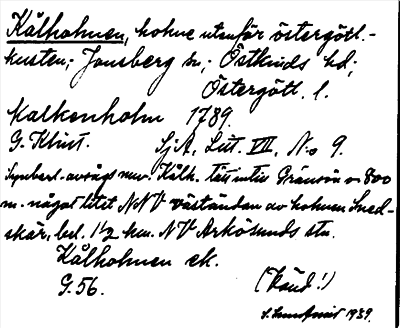 Kålholmen, holme utanför östergötl.-
kusten; Jonsberg sn; Östkinds hd;
Östergötl. l.
Kalkenholm 1789
G. Klint. SjA, Litt. VII, No 9.
Synberl. avsågs nuv. Kålh. tätt intill Gränsön o. 800
m. något litet N NV väständan av holmen Sned-
skär, bel. 1½ km. NV Arkösunds stn.
Kålholmen ek.
G. 56. (känd!)
1939.